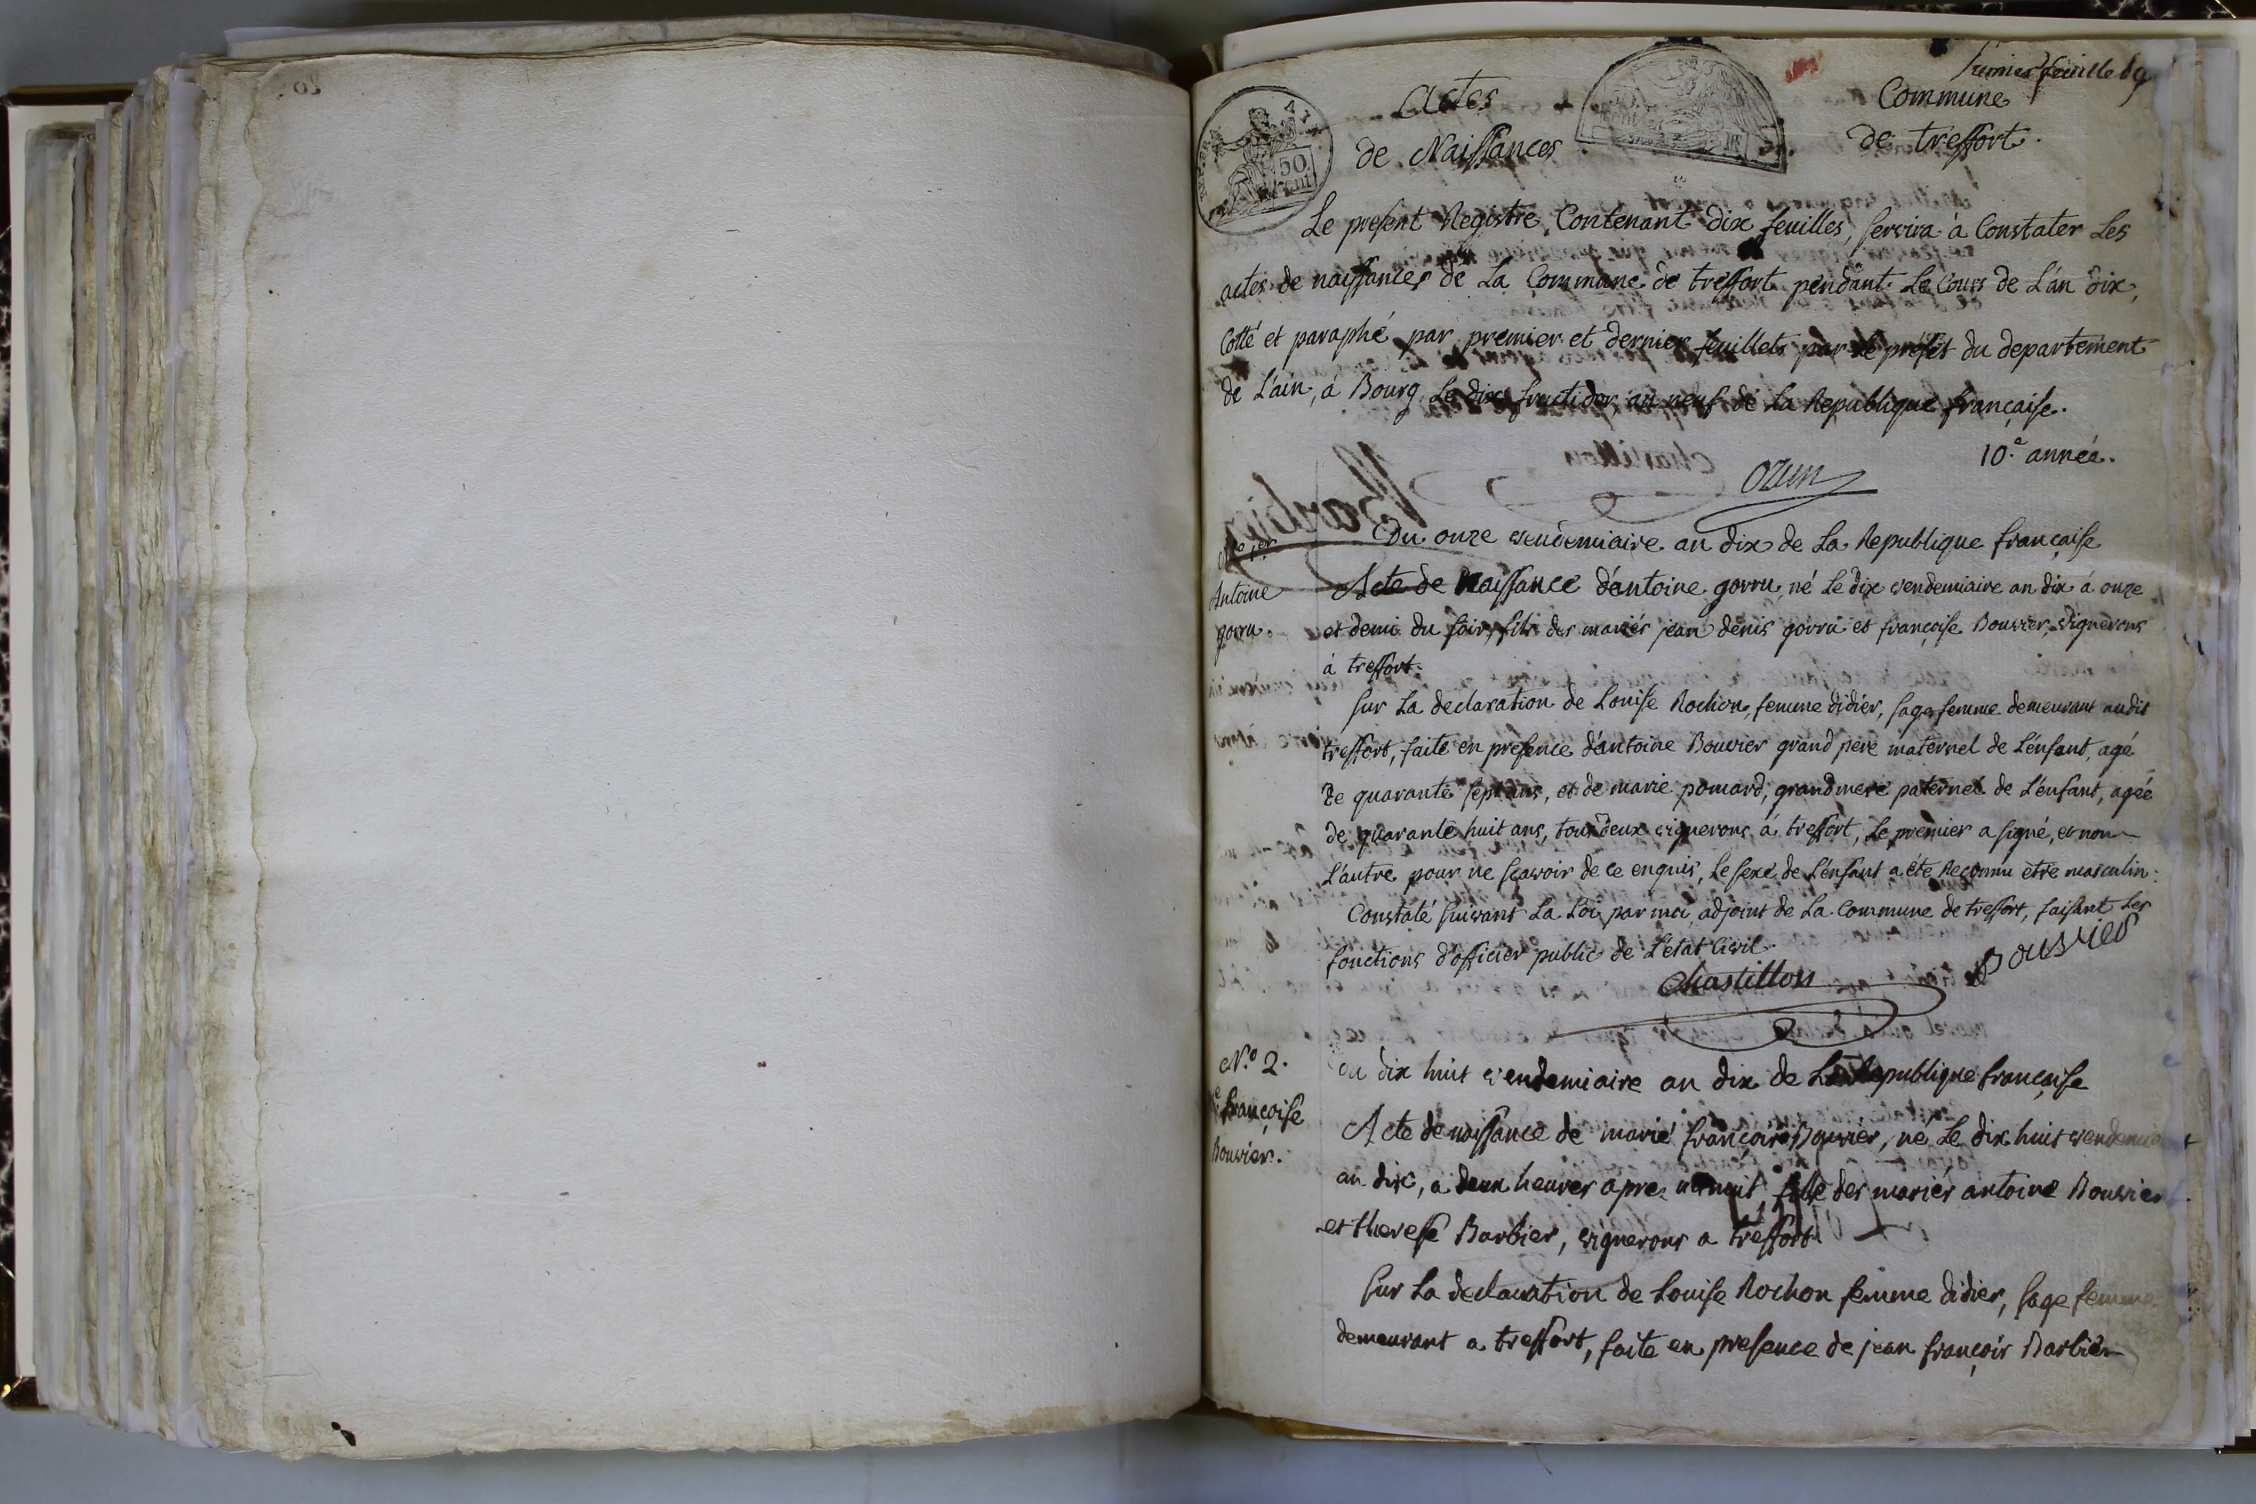 premier feuille
Actes
de Naissances
Commune
de treffort.
50
Cent
Le present Registre, Contenant dix feuilles, servira à Constater Les
actes de naissances de La Commune de treffort pendant Le Cours de L'an dix,
Cotté et paraphé par premier et dernier feuillets par le prefet du departement
de L'ain, à Bourg Le dix fructidor an neuf de La Republique française.
10.e année.
ozun
N.o 1.er
Antoine
gorru.
Du onze vendemiaire an dix de La Republique française
Acte de Naissance d'antoine gorru, né Le dix vendemiaire an dix à onze
et demi du soir, fils des mariés jean denis gorru et françoise Bouvier, vignerons
à treffort.
Sur La declaration de Louise Rochon, femme didier, sage femme demeurant audit
treffort, faite en presence d'antoine Bouvier grand pere maternel de L'enfant, agé
de quarante sept ans, et de marie pomard, grandmere paternel de L'enfant, agée
de quarante huit ans, tous deux vignerons à treffort, Le premier a signé, et non
L'autre pour ne sçavoir de ce enquis, Le sexe de L'enfant a été Reconnu être masculin:
Constaté suivant La Loi, par moi, adjoint de La Commune de treffort, faisant Les
fonctions d'officier public de L'état Civil.
Bouvier
Chastillon
N.o 2.
françoise
Bouvier.
du dix huit vendemiaire an dix de La Republique française
Acte de naissance de marie françoise Bouvier, né Le dix huit
an dix, a deux heures apres minuit fille des mariés antoine Bouvier
et therese Barbier, vignerons a treffort
Sur La declaration de Louise Rochon femme didier, sage femme
demeurant a treffort, faite en presence de jean françois Barbier